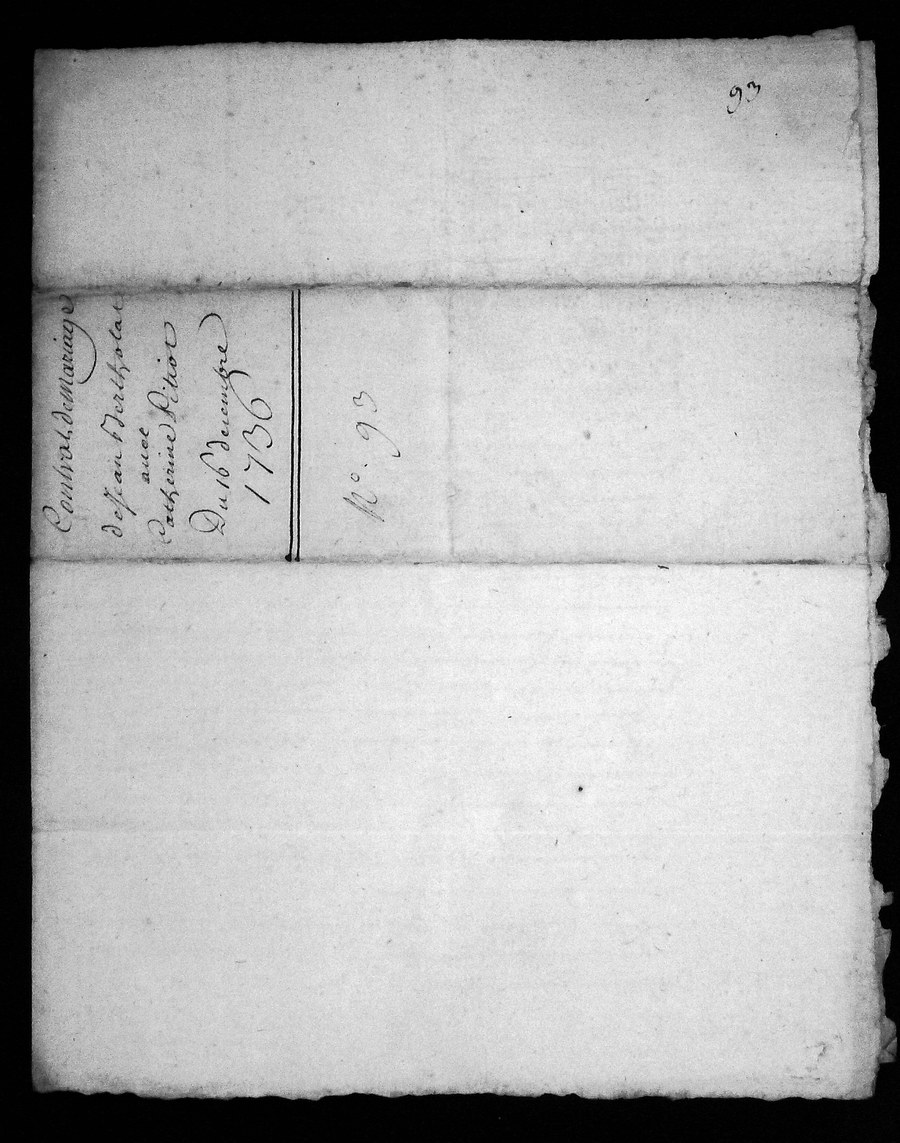 93
Contrat de mariage
de Jean Bertholat
avec
Catherine Petiot
Du 16 decembre
1736
No. 93